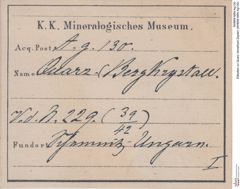 K. K. Mineralogisches Museum.
Acq. Post A. g. 130.
Name Quarz (Bergkrystall.
V. d. N. 229. (39/42)
Fundort Schemnitz, Ungarn.
I